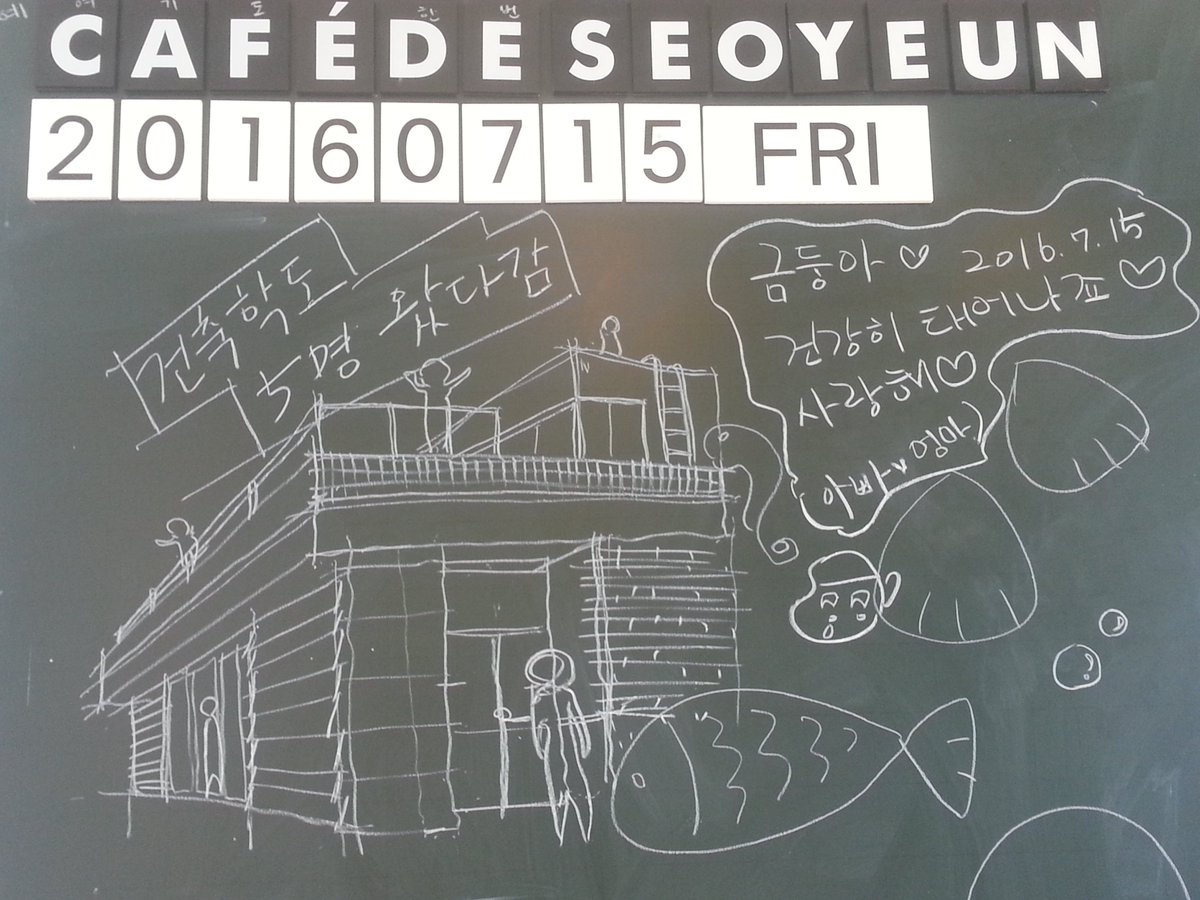 예 여기도 한번
CAFÉ DE SEOYEUN
20160715 FRI
건축학도
5명 왔다감
금둥아♡ 2016.7.15
건강히 태어나죠♡
사랑해♡
아빠v엄마